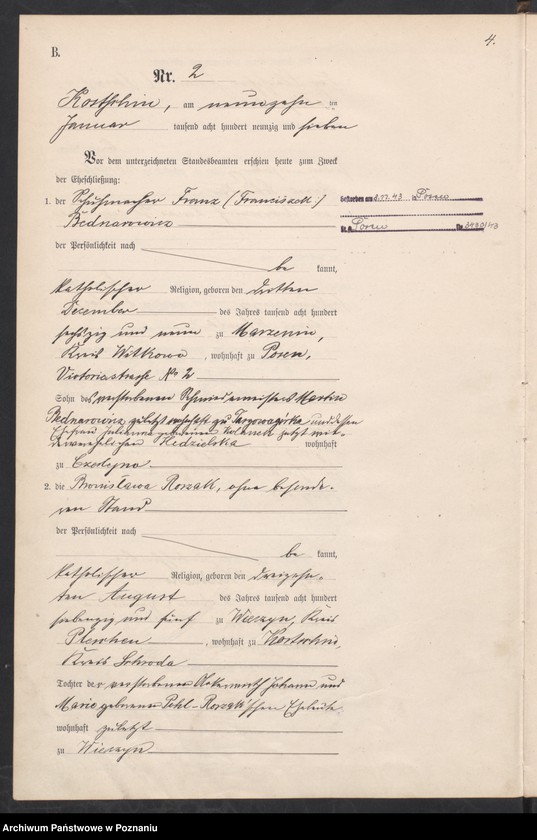 4.
B.
Nr. 2
Kostschin, am neunzehn ten
Januar tausend acht hundert neunzig und sieben
Vor dem unterzeichneten Standesbeamten erschien heute zum Zweck
der Eheschließung:
1. der Schuhmacher Franz (Franciszek)
Bednarowicz
Gestorben am 8.11.43 Posen
St. A. Posen Nr. 3420/43
der Persönlichkeit nach
be kannt,
katholischer Religion, geboren den dritten
Dezember des Jahres tausend acht hundert
sechszig und neun zu Marzenin,
Kreis Witkowo, wohnhaft zu Posen,
Victoriastrasse No 2
Sohn des verstorbenen Schmiedemeisters Martin
Bednarowicz zuletzt wohnhaft zu Targowagórka und dessen
Ehefrau Julianna geborenen jetzt wie-
derverehelichten Kedzielska wohnhaft
zu Czerlejno
2. die Bronislawa Roszak, ohne besonde-
ren Stand
der Persönlichkeit nach
be kannt,
katholischer Religion, geboren den dreizehn-
ten August des Jahres tausend acht hundert
siebenzig und fünf zu Wieczyn, Kreis
Pleschen, wohnhaft zu Kostschin,
Kreis Schroda
Tochter der verstorbenen Ackerwirth Johann und
Marie geborenen Pehl-Roszak'schen Eheleute
wohnhaft zuletzt
zu Wieczyn
Archiwum Państwowe w Poznaniu